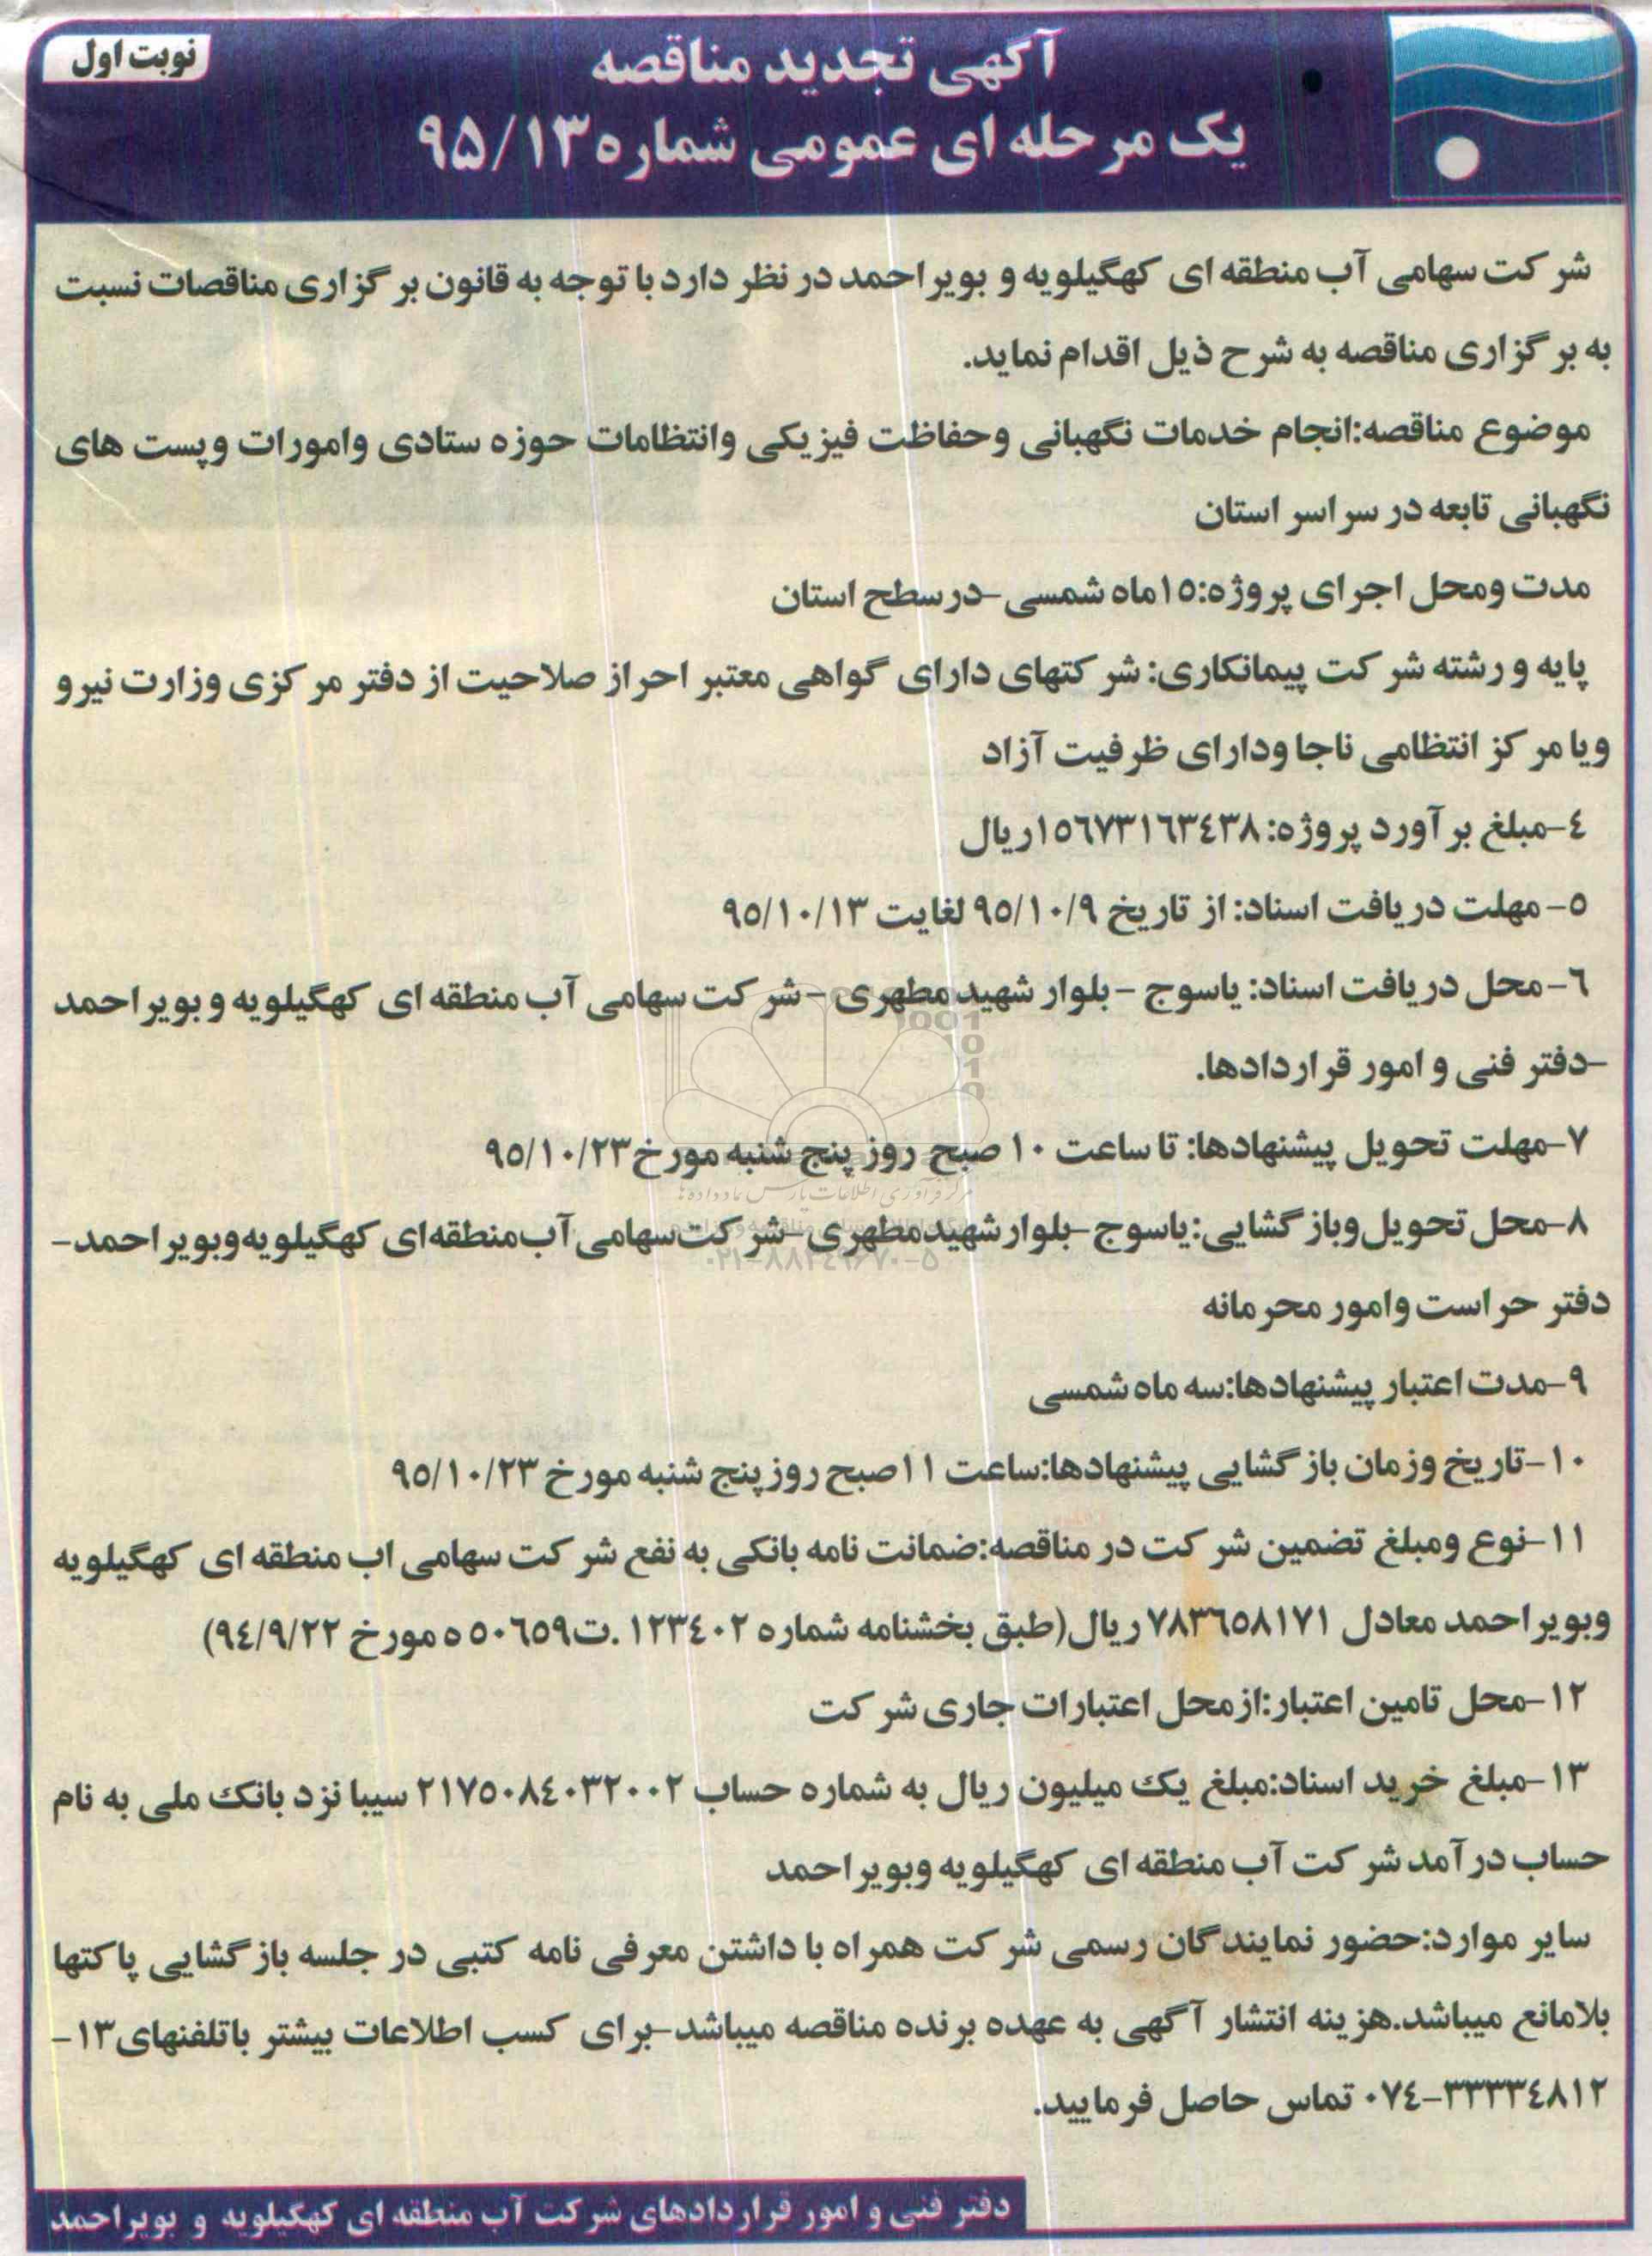 نوبت اول
آگهی تجدید مناقصه
یک مرحله ای عمومی شماره ۹۵/۱۳
شرکت سهامی آب منطقه ای کهگیلویه و بویراحمد در نظر دارد با توجه به قانون برگزاری مناقصات نسبت
به برگزاری مناقصه به شرح ذیل اقدام نماید.
موضوع مناقصه:انجام خدمات نگهبانی وحفاظت فیزیکی وانتظامات حوزه ستادی وامورات وپست های
نگهبانی تابعه در سراسر استان
مدت ومحل اجرای پروژه:۱۵ماه شمسی-درسطح استان
پایه و رشته شرکت پیمانکاری: شرکتهای دارای گواهی معتبر احراز صلاحیت از دفتر مرکزی وزارت نیرو
ویا مرکز انتظامی ناجا ودارای ظرفیت آزاد
۴-مبلغ برآورد پروژه: ۱۵۶۷۳۱۶۳۴۳۸ریال
۵- مهلت دریافت اسناد: از تاریخ ۹۵/۱۰/۹ لغایت ۹۵/۱۰/۱۳
۶- محل دریافت اسناد: یاسوج - بلوار شهید مطهری - شرکت سهامی آب منطقه ای کهگیلویه و بویراحمد
-دفتر فنی و امور قراردادها.
۷-مهلت تحویل پیشنهادها: تا ساعت ۱۰ صبح روز پنج شنبه مورخ ۹۵/۱۰/۲۳
مرکز فرآوری اطلاعات پارس نماد داده ها
۸-محل تحویل وبازگشایی:یاسوج -بلوار شهیدمطهری-شرکت سهامی آب منطقه ای کهگیلویه وبویراحمد-
۰۲۱-۸۸۳۴۹۶۷۰-۵
دفتر حراست وامور محرمانه
۹-مدت اعتبار پیشنهادها:سه ماه شمسی
۱۰-تاریخ وزمان بازگشایی پیشنهادها:ساعت ۱۱صبح روز پنج شنبه مورخ ۹۵/۱۰/۲۳
۱۱-نوع ومبلغ تضمین شرکت در مناقصه:ضمانت نامه بانکی به نفع شرکت سهامی اب منطقه ای کهگیلویه
وبویراحمد معادل ۷۸۳۶۵۸۱۷۱ ریال(طبق بخشنامه شماره ۱۲۳۴۰۲ .ت۵۰۶۵۹ ه مورخ ۹۴/۹/۲۲)
۱۲-محل تامین اعتبار:ازمحل اعتبارات جاری شرکت
۱۳-مبلغ خرید اسناد:مبلغ یک میلیون ریال به شماره حساب ۲۱۷۵۰۸۴۰۳۲۰۰۲ سیبا نزد بانک ملی به نام
حساب درآمد شرکت آب منطقه ای کهگیلویه وبویراحمد
سایر موارد:حضور نمایندگان رسمی شرکت همراه با داشتن معرفی نامه کتبی در جلسه بازگشایی پاکتها
بلامانع میباشد.هزینه انتشار آگهی به عهده برنده مناقصه میباشد-برای کسب اطلاعات بیشتر باتلفنهای ۱۳-
۰۷۴-۳۳۳۳۴۸۱۲ تماس حاصل فرمایید.
دفتر فنی و امور قراردادهای شرکت آب منطقه ای کهگیلویه و بویراحمد